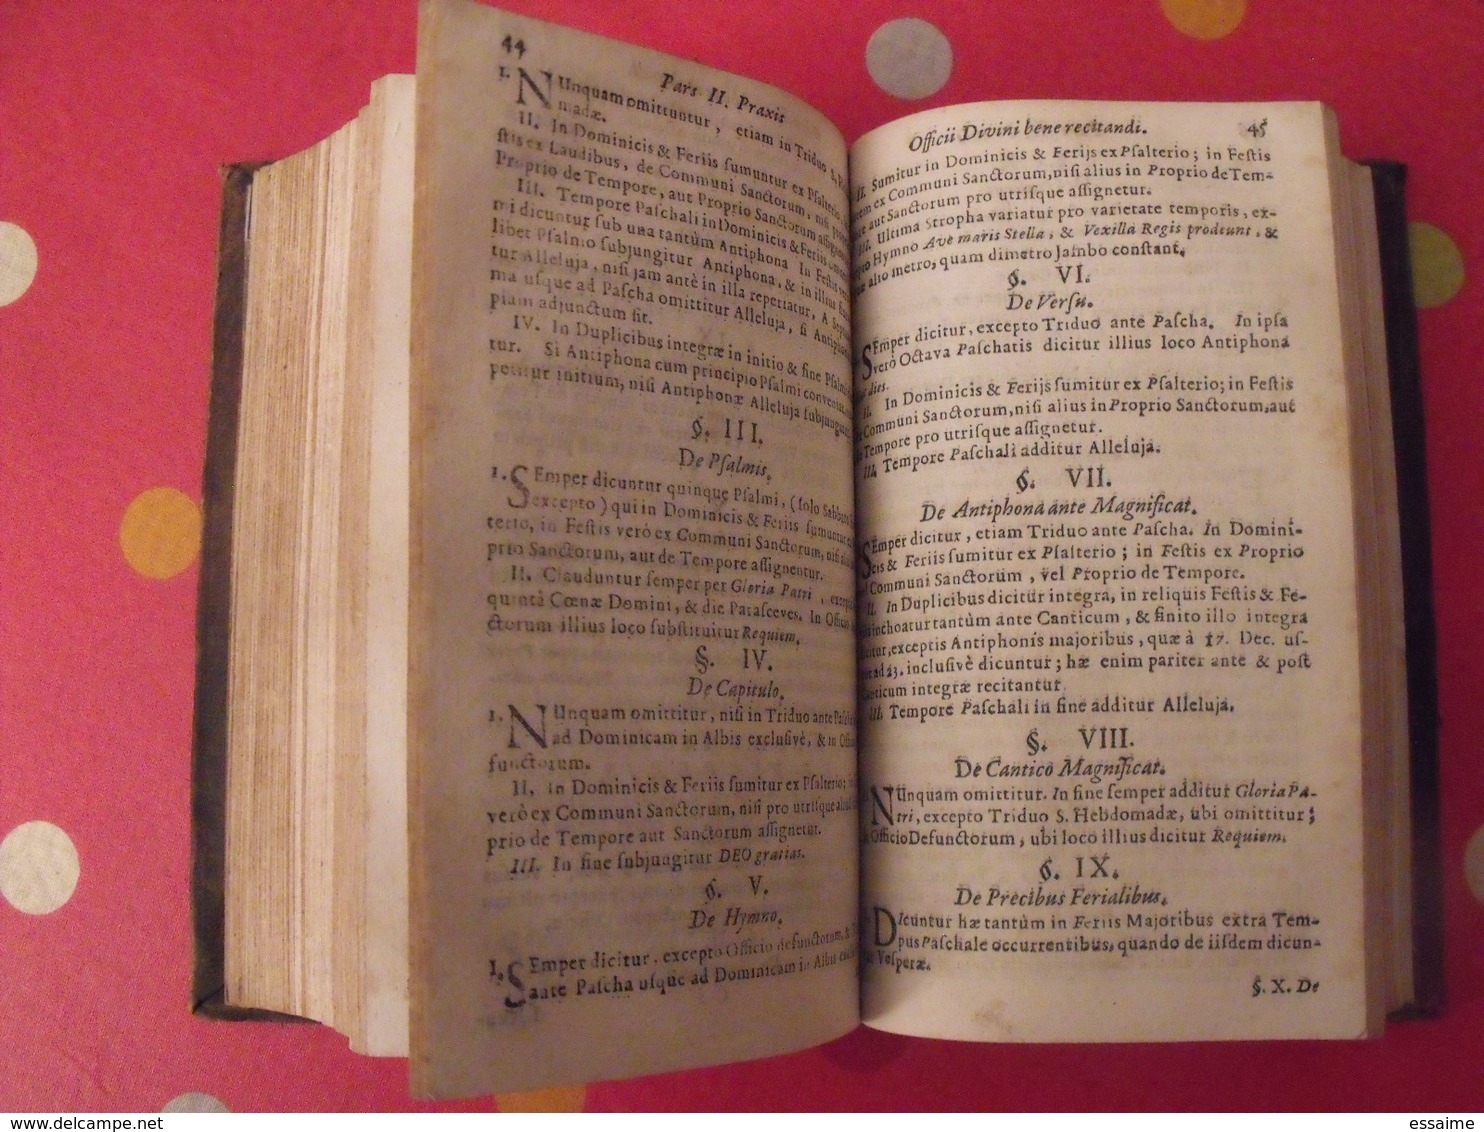 44
Pars II. Praxis
1. NUnquam omittuntur, etiam in Triduo S.
madæ.
II. In Dominicis & Feriis ſumuntur ex Pſalterio,
ſtis ex Laudibus, de Communi Sanctorum, niſi
Proprio de Tempore, aut Proprio Sanctorum
III. Tempore Paſchali in Dominicis & Feriis
mi dicuntur ſub una tantùm Antiphona In Feſtis
libet Pſalmo ſubjungitur Antiphona, & in illius
tur Alleluja, niſi jam antè in illa repetiatur, A
ma uſque ad Paſcha omittitur Alleluja, ſi
plam adjunctum ſit.
IV. In Duplicibus integræ in initio & fine
tur. Si Antiphona cum principio Pſalmi
petitur initium, niſi Antiphonæ Alleluja
§. III.
De Pſalmis.
1. SEmper dicuntur quinque Pſalmi, (ſolo
excepto) qui in Dominicis & Feriis ſumuntur
terio, in Feſtis verò ex Communi Sanctorum, niſi
prio Sanctorum, aut de Tempore aſſignentur.
II. Clauduntur ſemper per Gloria Patri,
quintâ Cœnæ Domini, & die Paraſceves. In Officio
ctorum illius loco ſubſtituitur Requiem.
§. IV.
De Capitulo.
1. NUnquam omittitur, niſi in Triduo ante
ad Dominicam in Albis excluſivè, & in
functorum.
II. In Dominicis & Feriis ſumitur ex Pſalterio;
verò ex Communi Sanctorum, niſi pro utriſque
prio de Tempore aut Sanctorum aſſignetur.
III. In fine ſubjungitur DEO gratias.
§. V.
De Hymno.
1. SEmper dicitur, excepto Officio defunctorum, &
ante Paſcha uſque ad Dominicam in Albis
Officii Divini bene recitandi. 45
II. Sumitur in Dominicis & Ferijs ex Pſalterio; in Feſtis
ex Communi Sanctorum, niſi alius in Proprio de Tem-
aut Sanctorum pro utriſque aſſignetur.
III. Ultima Stropha variatur pro varietate temporis, ex-
Hymno Ave maris Stella, & Vexilla Regis prodeunt, &
alio metro, quam dimetro Jambo conſtant.
§. VI.
De Verſu.
SEmper dicitur, excepto Triduo ante Paſcha. In ipſa
verò Octava Paſchatis dicitur illius loco Antiphona
dies.
II. In Dominicis & Ferijs ſumitur ex Pſalterio; in Feſtis
Communi Sanctorum, niſi alius in Proprio Sanctorum, aut
Tempore pro utriſque aſſignetur.
III. Tempore Paſchali additur Alleluja.
§. VII.
De Antiphona ante Magnificat.
SEmper dicitur, etiam Triduo ante Paſcha. In Domini-
cis & Feriis ſumitur ex Pſalterio; in Feſtis ex Proprio
Communi Sanctorum, vel Proprio de Tempore.
II. In Duplicibus dicitur integra, in reliquis Feſtis & Fe-
inchoatur tantùm ante Canticum, & finito illo integra
exceptis Antiphonis majoribus, quæ à 17. Dec. uſ-
ad 23. incluſivè dicuntur; hæ enim pariter ante & poſt
Canticum integræ recitantur.
III. Tempore Paſchali in fine additur Alleluja.
§. VIII.
De Cantico Magnificat.
NUnquam omittitur. In fine ſemper additur Gloria Pa-
tri, excepto Triduo S. Hebdomadæ, ubi omittitur;
Officio Defunctorum, ubi loco illius dicitur Requiem.
§. IX.
De Precibus Ferialibus.
DIcuntur hæ tantùm in Feriis Majoribus extra Tem-
pus Paſchale occurrentibus, quando de iiſdem dicun-
Veſperæ.
§. X. De
www.delcampe.net
essaime